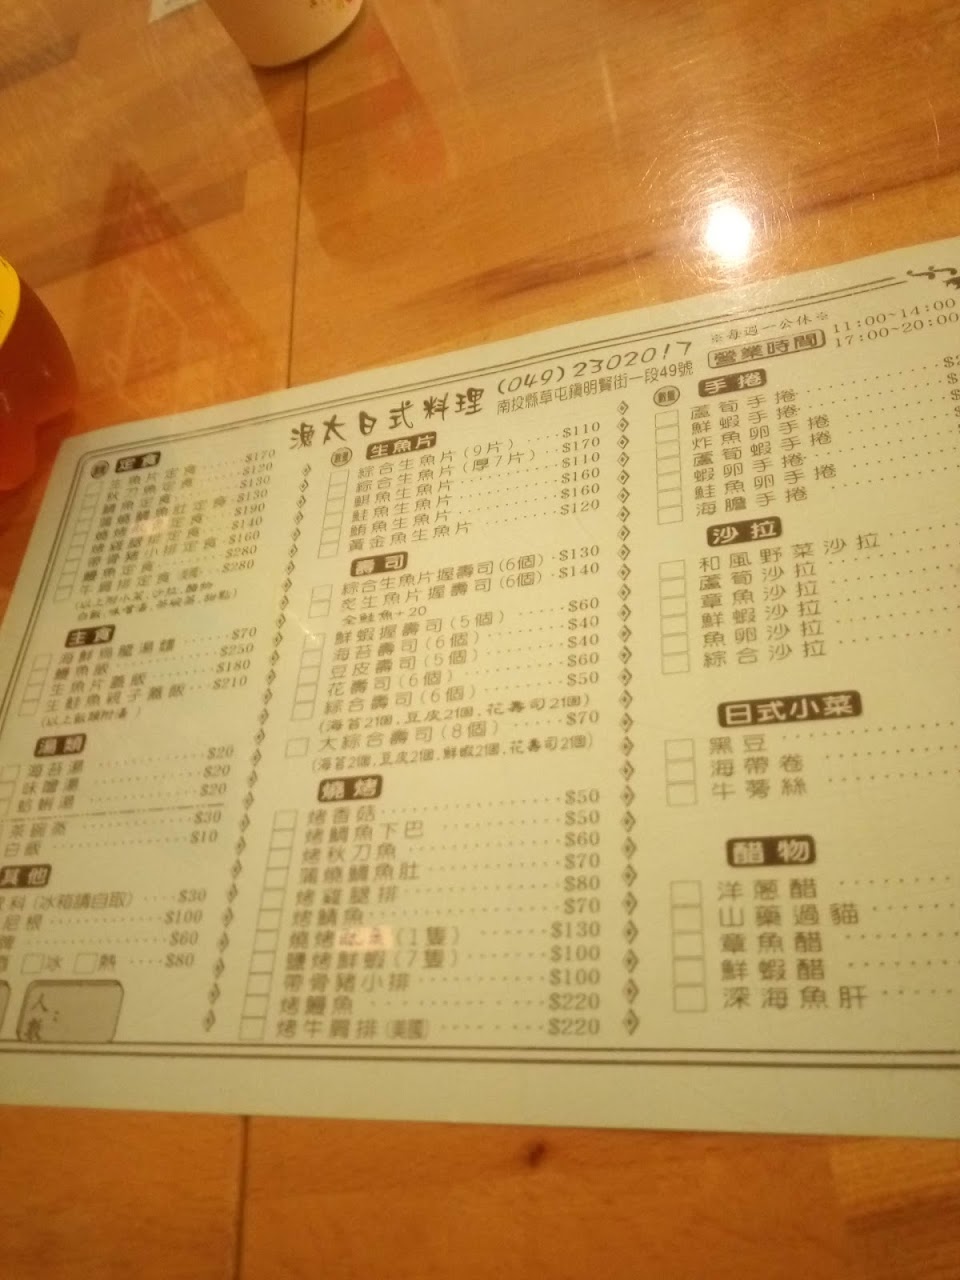 漁太日式料理 (049)2302017
南投縣草屯鎮明賢街一段49號
※每週一公休※
營業時間 11:00~14:00
17:00~20:00
定食
生魚片定食 $170
秋刀魚定食 $120
鯖魚定食 $130
蒲燒鯛魚肚定食 $130
$190
烤雞腿排定食 $140
帶骨豬小排定食 $160
鰻魚定食 $280
牛肩排定食 $280
(以上附小菜.沙拉.醋物
白飯.味噌湯.茶碗蒸.甜點)
主食
海鮮烏龍湯麵 $70
鰻魚飯 $250
生魚片蓋飯 $180
生鮭魚親子蓋飯 $210
(以上飯類附湯)
湯類
海苔湯 $20
味噌湯 $20
蛤蜊湯 $20
茶碗蒸 $30
白飯 $10
其他
(冰箱請自取) $30
尼根 $100
牌 $60
冰 熱 $80
人
數:
數量 生魚片
綜合生魚片(9片) $110
綜合生魚片(厚7片) $170
鯛魚生魚片 $110
鮭魚生魚片 $160
鮪魚生魚片 $160
黃金魚生魚片 $120
壽司
綜合生魚片握壽司(6個) $130
炙生魚片握壽司(6個) $140
全鮭魚+20
鮮蝦握壽司(5個) $60
海苔壽司(6個) $40
豆皮壽司(5個) $40
花壽司(6個)
綜合壽司(6個) $50
(海苔2個,豆皮2個,花壽司2個)
大綜合壽司(8個) $70
(海苔2個,豆皮2個,鮮蝦2個,花壽司2個)
燒烤
烤香菇 $50
烤鯛魚下巴 $50
烤秋刀魚 $60
蒲燒鯛魚肚 $70
烤雞腿排 $80
烤鯖魚 $70
燒烤 (1隻) $130
鹽烤鮮蝦(7隻) $100
帶骨豬小排 $100
烤鰻魚 $220
烤牛肩排(美國) $220
數量 手捲
蘆筍手捲
鮮蝦手捲
炸魚卵手捲
蘆筍蝦手捲
蝦卵手捲
鮭魚卵手捲
海膽手捲
沙拉
和風野菜沙拉
蘆筍沙拉
章魚沙拉
鮮蝦沙拉
魚卵沙拉
綜合沙拉
日式小菜
黑豆
海帶卷
牛蒡絲
醋物
洋蔥醋
山藥過貓
章魚醋
鮮蝦醋
深海魚肝